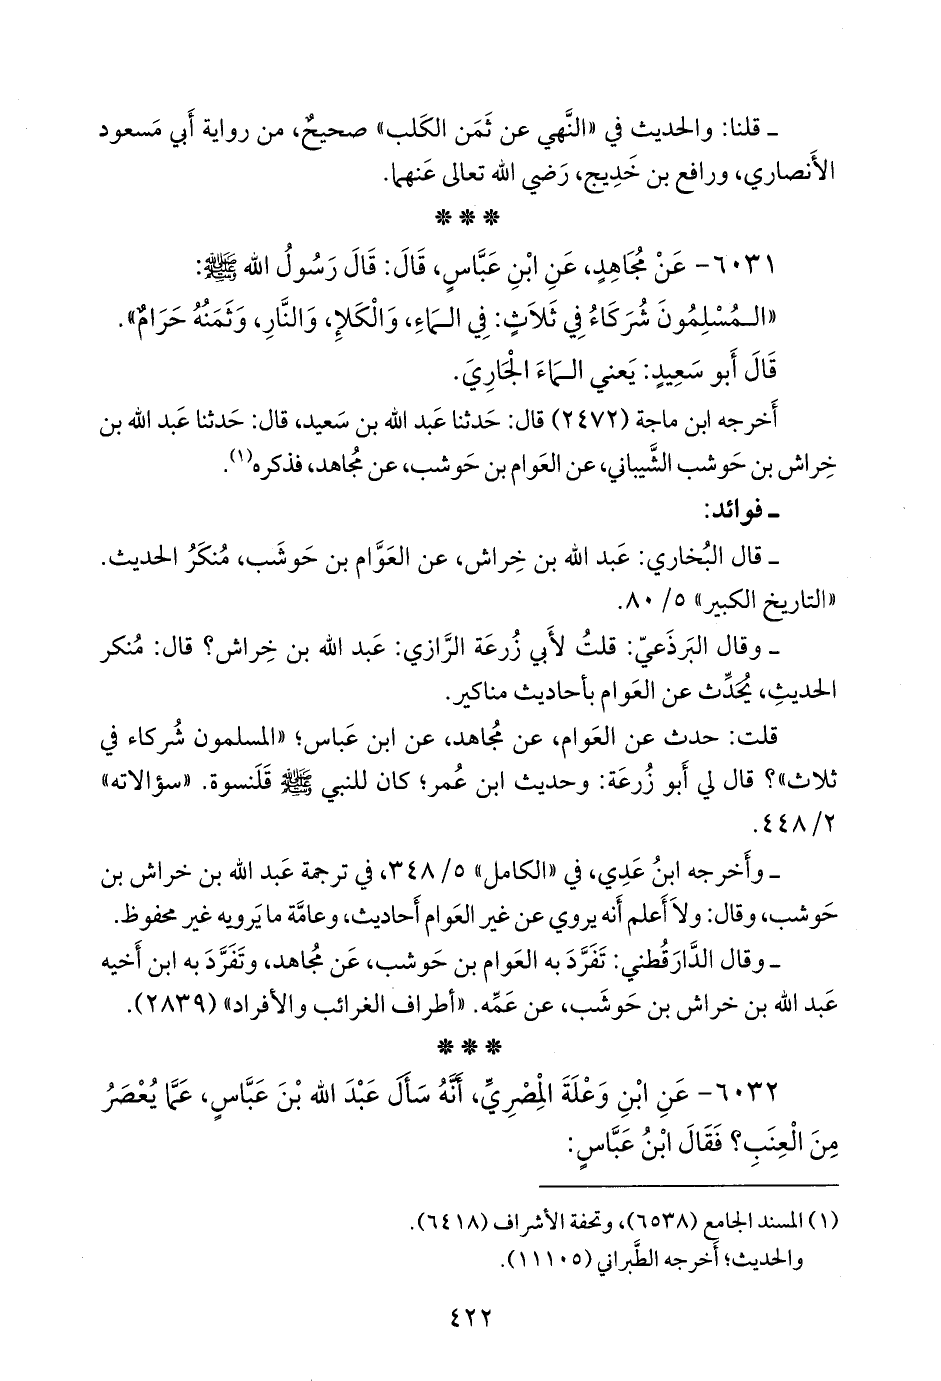 ـ قلنا: والحديث في «النَّهي عن ثَمَن الكَلب» صحيحٌ، من رواية أَبي مَسعود
الأَنصاري، ورافع بن خَدِيج، رَضي الله تعالى عَنهما.
* * *
٦٠٣١- عَنْ مُجَاهِدٍ، عَنِ ابْنِ عَبَّاسٍ، قَالَ: قَالَ رَسُولُ الله ﷺ:
«المُسْلِمُونَ شُرَكَاءُ فِي ثَلَاثٍ: فِي المَاءِ، وَالْكَلإِ، وَالنَّارِ، وَثَمَنُهُ حَرَامٌ».
قَالَ أَبو سَعِيدٍ: يَعني المَاءَ الْجَارِيَ.
أَخرجه ابن ماجة (٢٤٧٢) قال: حَدثنا عَبد الله بن سَعيد، قال: حَدثنا عَبد الله بن
خِراش بن حَوشب الشَّيباني، عن العَوام بن حَوشب، عن مُجاهد، فذكره(١).
ـ فوائد:
ـ قال البُخاري: عَبد الله بن خِراش، عن العَوَّام بن حَوشَب، مُنكَرُ الحديث.
«التاريخ الكبير» ٥/ ٨٠.
ـ وقال البَرذَعيّ: قلتُ لأَبي زُرعَة الرَّازي: عَبد الله بن خِراش؟ قال: مُنكر
الحديثِ، يُحَدِّث عن العَوام بأحاديث مناكير.
قلت: حدث عن العوام، عن مُجاهد، عن ابن عَباس؛ «المسلمون شُركاء في
ثلاث»؟ قال لي أَبو زُرعَة: وحديث ابن عُمر؛ كان للنبي ﷺ قَلَنسوة. «سؤالاته»
٢/ ٤٤٨.
ـ وأَخرجه ابنُ عَدِي، في «الكامل» ٥/ ٣٤٨، في ترجمة عَبد الله بن خراش بن
حَوشب، وقال: ولاَ أَعلم أَنه يروي عن غير العَوام أَحاديث، وعامَّة ما يَرويه غير محفوظ.
ـ وقال الدَّارَقُطني: تَفَرَّدَ به العَوام بن حَوشب، عَن مُجاهد، وتَفَرَّدَ به ابن أَخيه
عَبد الله بن خراش بن حَوشَب، عن عَمِّه. «أطراف الغرائب والأفراد» (٢٨٣٩).
* * *
٦٠٣٢- عَنِ ابْنِ وَعْلَةَ الْمِصْرِيِّ، أَنَّهُ سَأَلَ عَبْدَ الله بْنَ عَبَّاسٍ، عَمَّا يُعْصَرُ
مِنَ الْعِنَبِ؟ فَقَالَ ابْنُ عَبَّاسٍ:
(١) المسند الجامع (٦٥٣٨)، وتحفة الأشراف (٦٤١٨).
والحديث؛ أَخرجه الطَّبراني (١١١٠٥).
٤٢٢